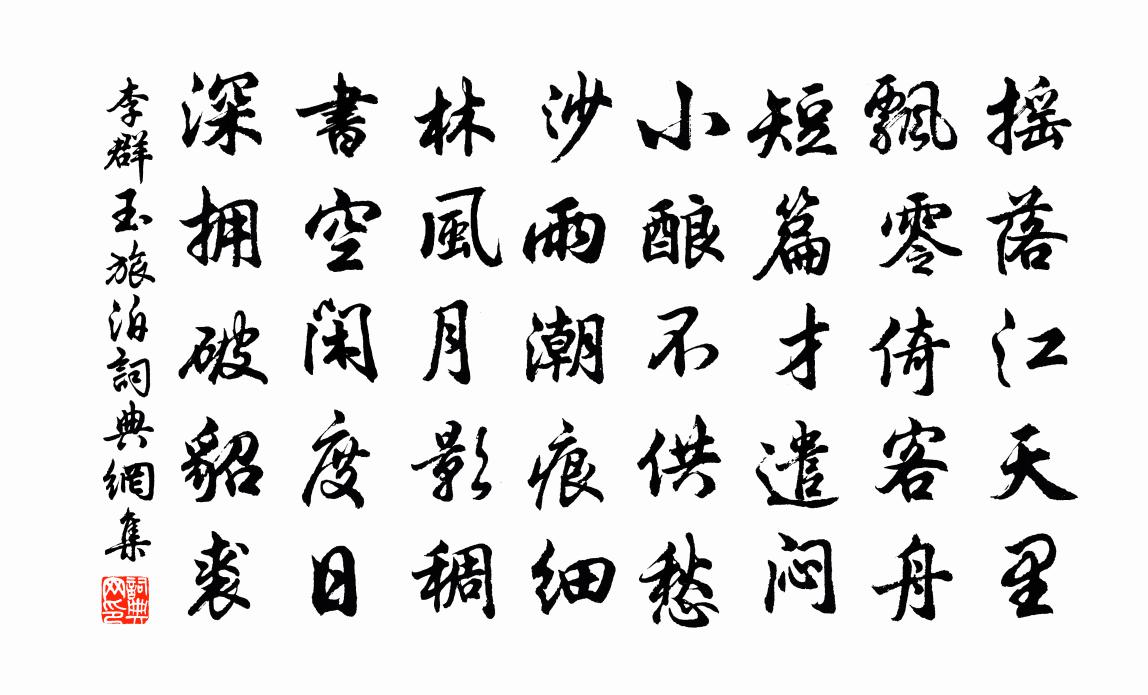 摇落江天里
飄零倚客舟
短篇才遣闷
小酿不供愁
沙雨潮痕细
林風月影稠
書空闲度日
深拥破貂裘
李群玉旅泊詞典網集
詞典网印